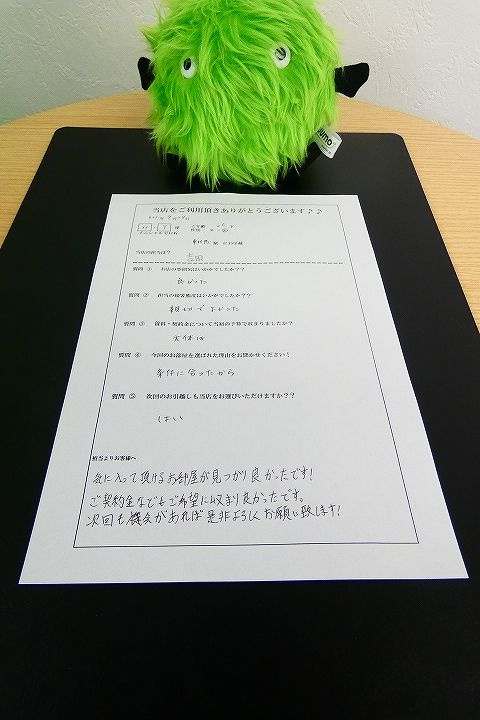 suumo
当店をご利用頂きありがとうございます♪♪
様
ご年齢
性別
にお引越
当店の担当は?
質問 ① お店の雰囲気はいかがでしたか??
良かった
質問 ② 担当の接客態度はいかがでしたか??
親切で よかった
質問 ③ 賃料・契約金について当初の予算で収まりましたか?
大体は
質問 ④ 今回のお部屋を選ばれた理由をお聞かせください!
条件に合ったから
質問 ⑤ 次回のお引越しも当店をお選びいただけますか??
はい
担当よりお客様へ
気に入って頂けるお部屋が見つかり良かったです!
ご契約金などもご希望に収まり良かったです。
次回も機会があれば是非よろしくお願い致します!